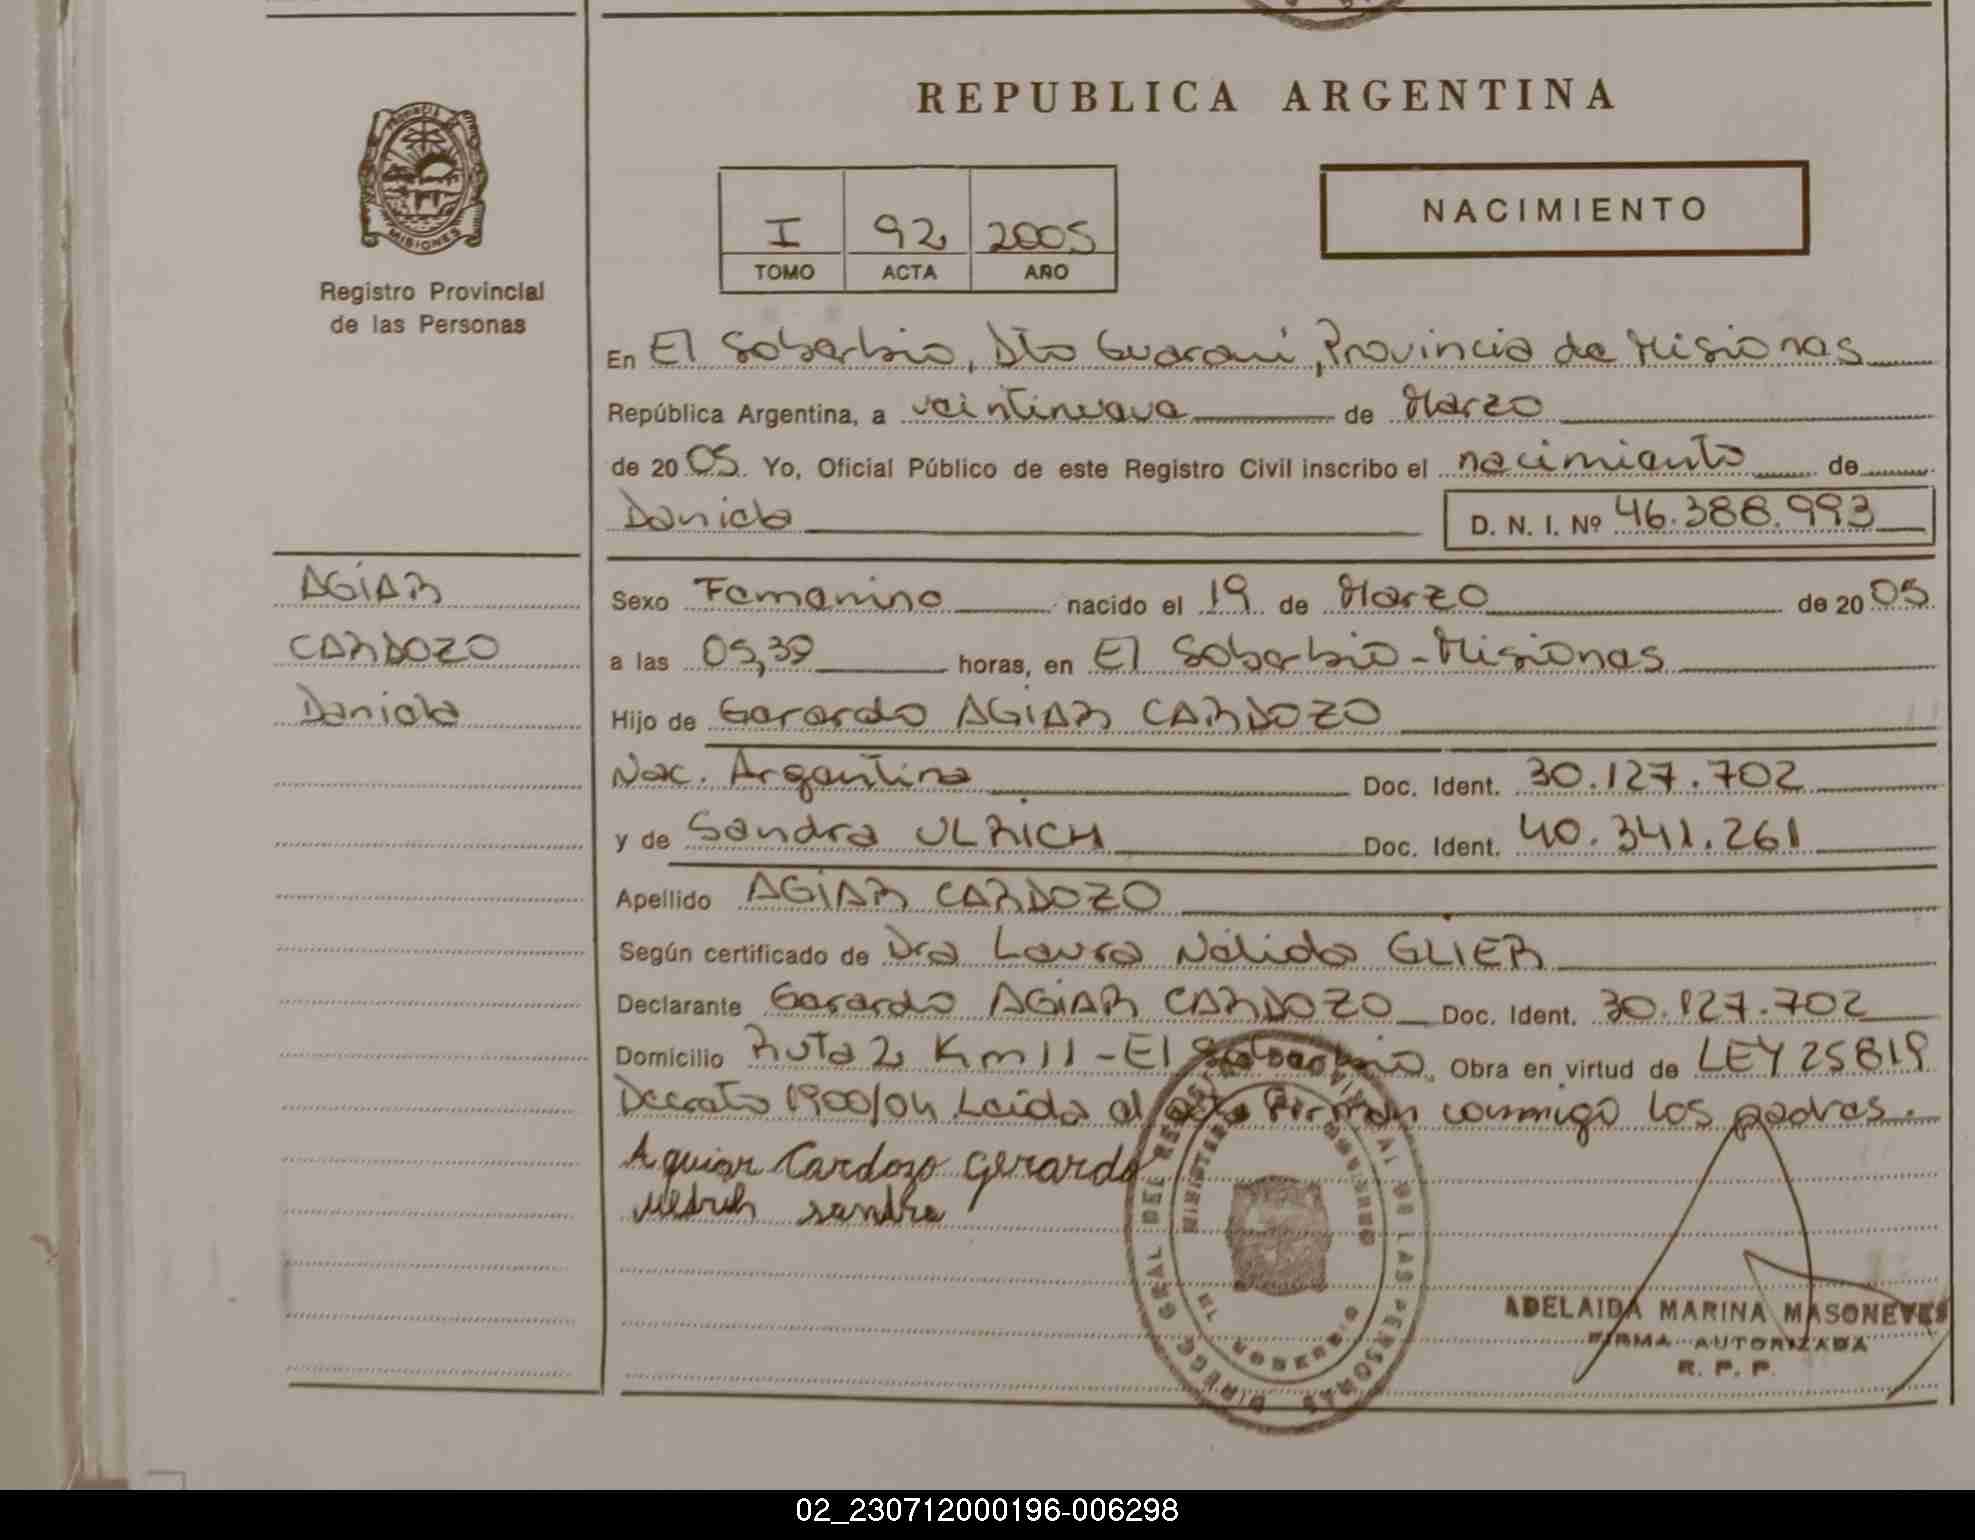 REPUBLICA ARGENTINA
PROVINCIA DE MISIONES
Registro Provincial
de las Personas
I 92 2005
TOMO ACTA AÑO
NACIMIENTO
En El Soberbio, Dto Guarani, Provincia de Misiones
República Argentina, a veintinueve de Marzo
de 2005. Yo, Oficial Público de este Registro Civil inscribo el nacimiento de
Daniela
D. N. I. Nº 46.388.993
AGIAR
CARDOZO
Daniela
Sexo Femenino nacido el 19 de Marzo de 2005
a las 05,30 horas, en El Soberbio - Misiones
Hijo de Gerardo AGIAR CARDOZO
Nac. Argentina Doc. Ident. 30.127.702
y de Sandra ULRICH Doc. Ident. 40.341.261
Apellido AGIAR CARDOZO
Según certificado de Dra Laura Nélida GLIER
Declarante Gerardo AGIAR CARDOZO Doc. Ident. 30.127.702
Domicilio Ruta 2 Km 11 - El Soberbio, Obra en virtud de LEY 25819
Decreto 1900/04 Leída el acta Firman conmigo los padres.
Aguiar Cardozo Gerardo
sandra
DIRECC GRAL DEL REGISTRO PROVINCIAL DE LAS PERSONAS
MINISTERIO DE GOBIERNO
ADELAIDA MARINA MASONEVES
FIRMA AUTORIZADA
R. P. P.
02_230712000196-006298